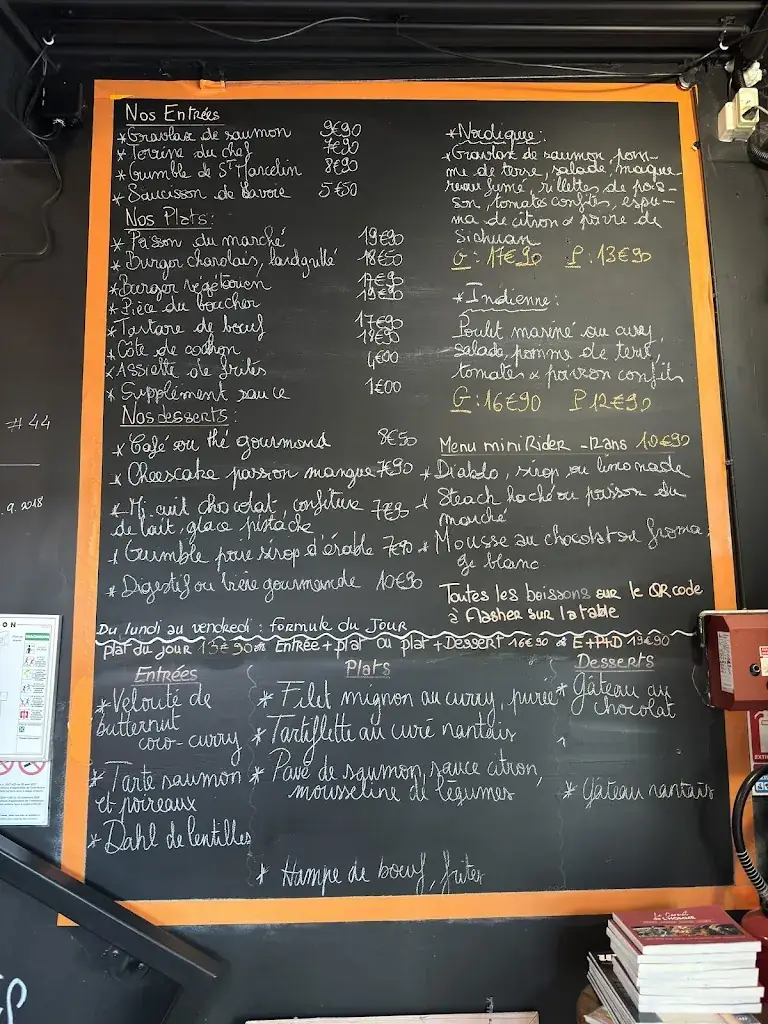 Nos Entrées
* Gravlax de saumon 9€90
* Terrine du chef 7€90
* Crumble de St Marcelin 8€90
* Saucisson de Savoie 5€50
Nos Plats:
* Poisson du marché 19€90
* Burger charolais, lardgrillé 18€50
* Burger végétarien 17€90
* Pièce du boucher 19€90
* Tartare de bœuf 17€90
* Côte de cochon
* Assiette de frites 4€00
* Supplément sauce 1€00
Nos desserts:
* Café ou thé gourmand 8€50
* Cheescake passion mangue 7€90
* Mi-cuit chocolat, confiture 7€90
de lait, glace pistache
* Crumble poire sirop d'érable 7€90
* Digestif ou bière gourmande 10€90
* Nordique:
* Gravlax de saumon, pom-
me de terre, salade, maque-
reau fumé, rillettes de pois-
son, tomates confites, espu-
ma de citron & poivre de
Sichuan
G: 17€90 P: 13€90
* Indienne:
Poulet mariné au curry,
salade, pomme de terre,
tomates & poivron confits
G: 16€90 P 12€90
Menu mini Rider -12ans 10€90
* Diabolo, sirop ou limonade
* Steack haché ou poisson du
marché
* Mousse au chocolat ou froma-
ge blanc
Toutes les boissons sur le QR code
à flasher sur la table
Du lundi au vendredi : formule du Jour
plat du jour 13€90 Entrée + plat ou plat + Dessert 16€90 E+P+D 19€90
Entrées
* Velouté de
butternut
coco-curry
* Tarte saumon
et poireaux
* Dahl de lentilles
Plats
* Filet mignon au curry, purée
* Tartiflette au curé nantais
* Pavé de saumon, sauce citron,
mousseline de légumes
* Hampe de bœuf, frites
Desserts
* Gâteau au
chocolat
* Gâteau nantais
#44
.9.2018